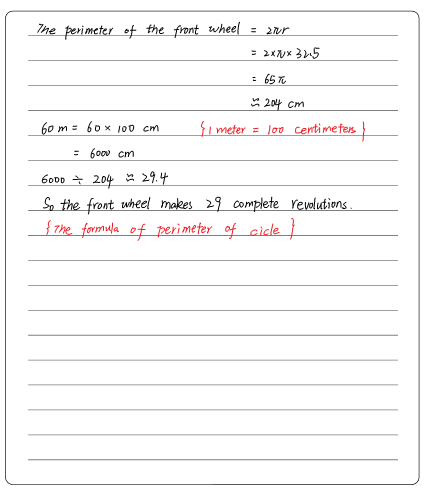 The perimeter of the front wheel = 2πr
= 2×π×32.5
= 65π
≈ 204 cm
60 m = 60 × 100 cm {1 meter = 100 centimeters}
= 6000 cm
6000 ÷ 204 ≈ 29.4
So the front wheel makes 29 complete revolutions.
{The formula of perimeter of cicle}